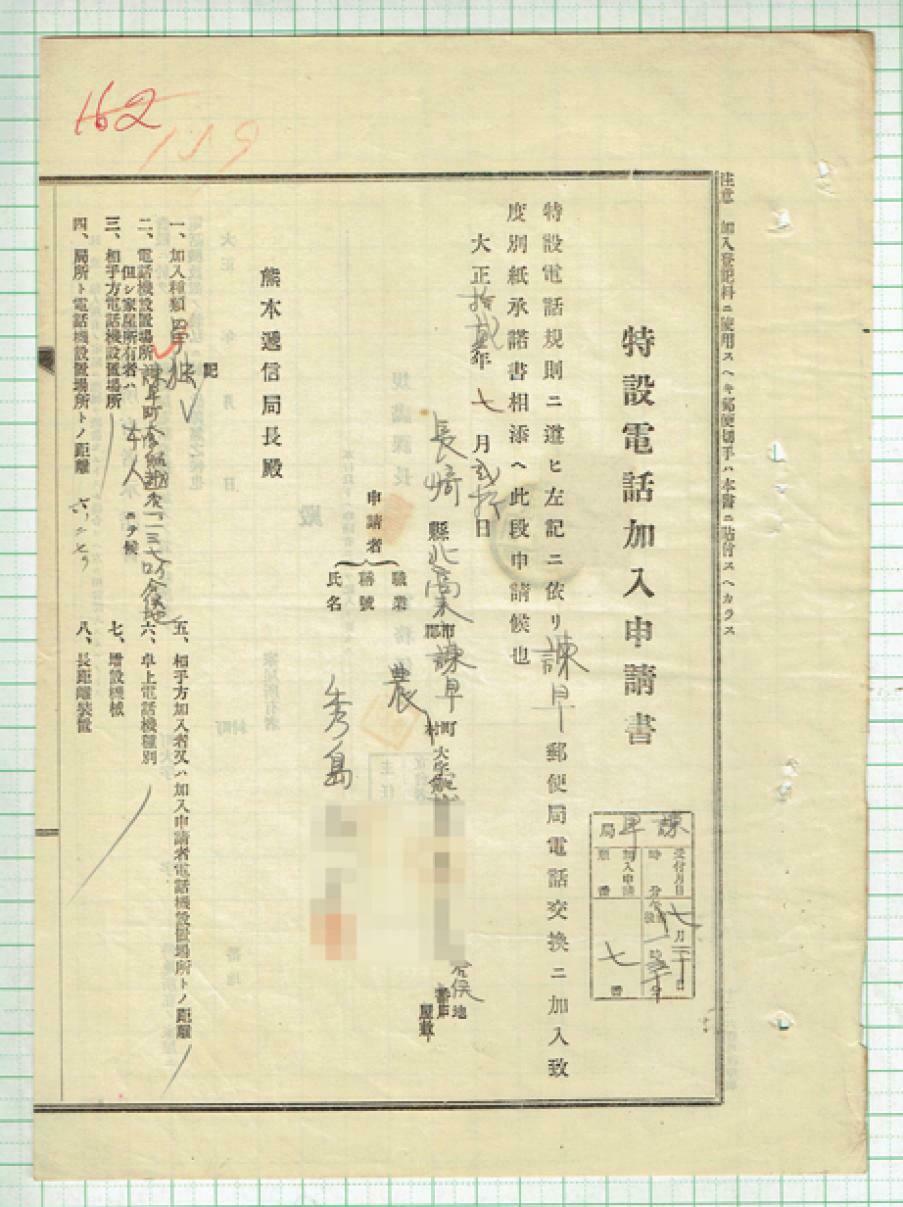 注意 加入登記料ニ使用スヘキ郵便切手ハ本書ニ貼付スヘカラス
特設電話加入申請書
諫早局
受付月日 七月二十日
時分
加入申請順番 七番
特設電話規則ニ遵ヒ左記ニ依リ諫早郵便局電話交換ニ加入致
度別紙承諾書相添ヘ此段申請候也
大正拾弐年七月弐拾日
長崎縣北高来市郡諫早町村大字
番地
番戸
屋敷
申請者
職業 農
稱號
氏名 秀島
熊本遞信局長殿
記
一、加入種類 單獨
二、電話機設置場所 諫早町
但シ家屋所有者ハ 本人 ニテ候
三、相手方電話機設置場所
四、局所ト電話機設置場所トノ距離
五、相手方加入者又ハ加入申請者電話機設置場所トノ距離
六、卓上電話機種別
七、增設機械
八、長距離裝置
162
119